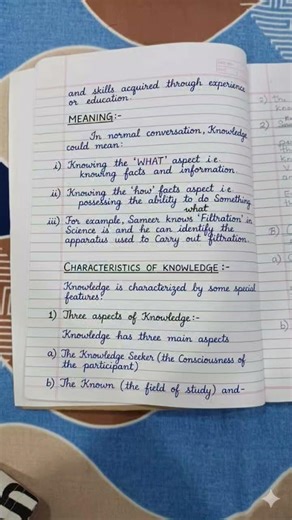 and skills acquired through experience
or education.
MEANING:-
In normal conversation, Knowledge
could mean:
i) Knowing the 'WHAT' aspect i.e.
knowing facts and information
ii) Knowing the 'how' facts aspect i.e
possessing the ability to do Something
what
iii) For example, Sameer knows 'Filtration' in
Science is and he can identify the
apparatus used to Carry out filtration.
CHARACTERISTICS OF KNOWLEDGE :-
Knowledge is characterized by some special
features:
1) Three aspects of Knowledge:-
Knowledge has three main aspects
a) The Knowledge Seeker (the Consciousness of
the participant)
b) The Known (the field of study) and-
2)
B)
a)
b)